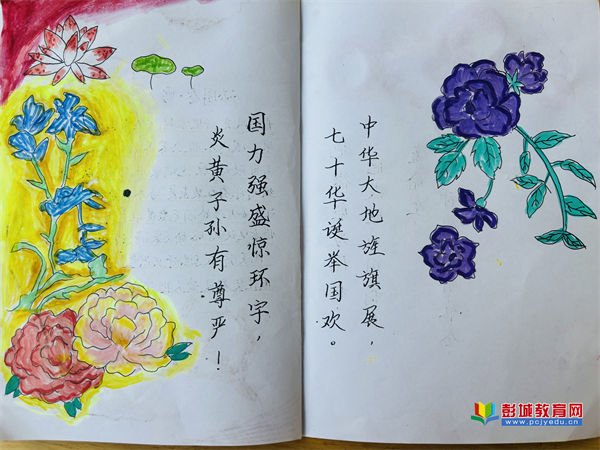 中华大地旌旗展，
七十华诞举国欢。
国力强盛惊环宇，
炎黄子孙有尊严！
彭城教育网
www.pcjyedu.cn